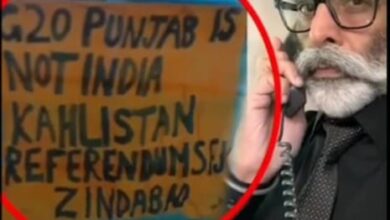 G20 PUNJAB IS
NOT INDIA
KAHLISTAN
REFERENDUM S.F.J
ZINDABAD